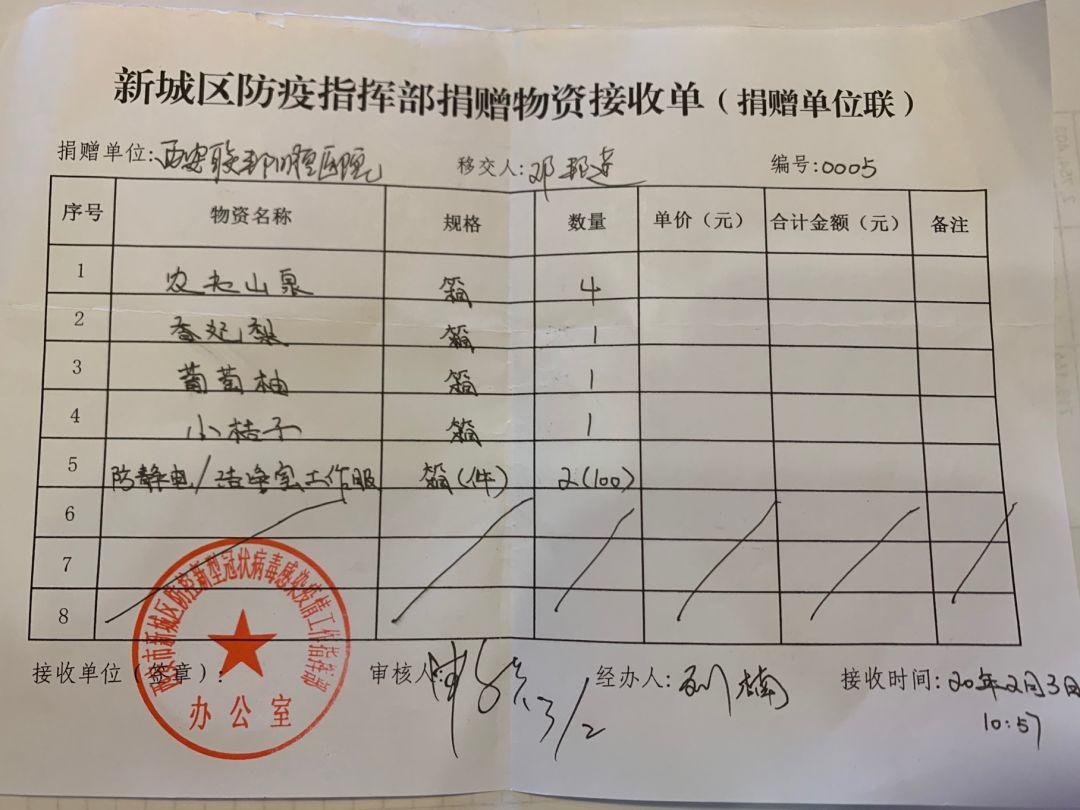 新城区防疫指挥部捐赠物资接收单（捐赠单位联）
捐赠单位:西安联邦口腔医院 移交人:邓邦莲 编号:0005
序号 物资名称 规格 数量 单价（元） 合计金额（元） 备注
1 农夫山泉 箱 4
2 香妃梨 箱 1
3 葡萄柚 箱 1
4 小桔子 箱 1
5 防静电/洁净室工作服 箱(件) 2(100)
6
7
8
西安市新城区防控新型冠状病毒感染疫情工作指挥部
办公室
接收单位（签章）: 审核人: 3/2 经办人:刘楠 接收时间:20年2月3日
10:57